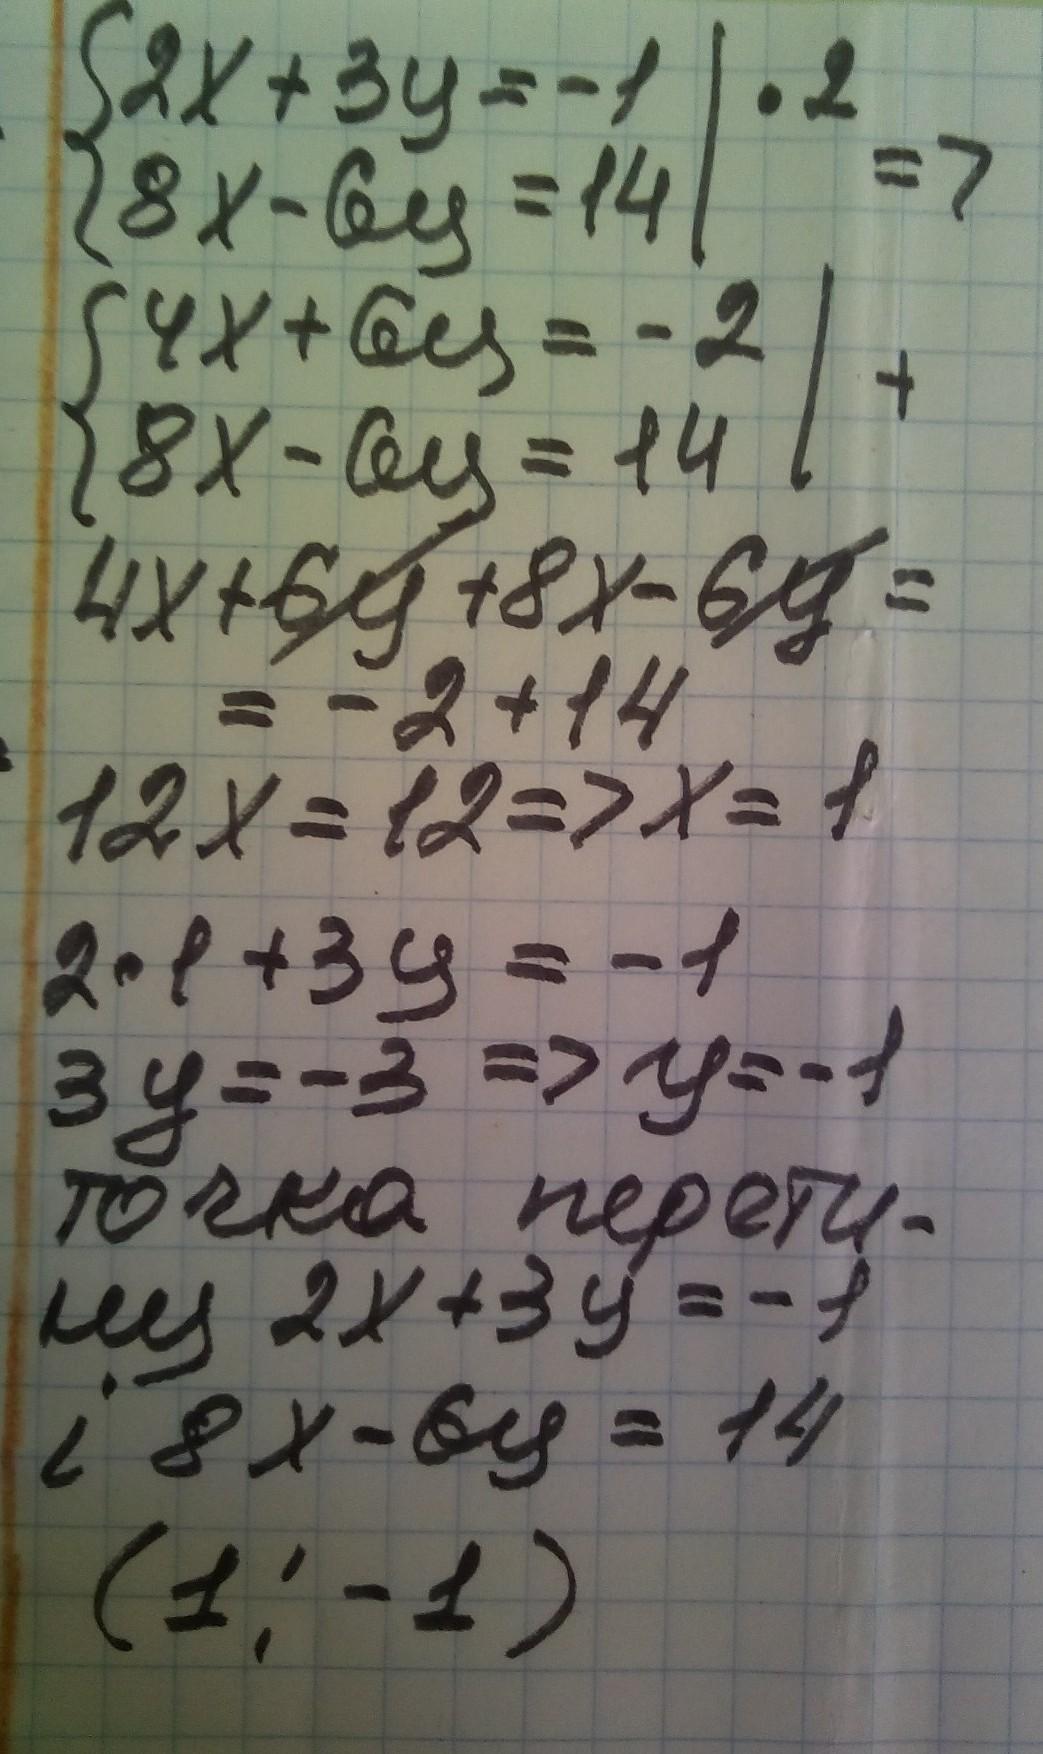 {2x + 3y = -1 | · 2
{8x - 6y = 14 | =>
{4x + 6y = -2 | +
{8x - 6y = 14
4x + 6y + 8x - 6y =
= -2 + 14
12x = 12 => x = 1
2 · 1 + 3y = -1
3y = -3 => y = -1
точка перети-
ну 2x + 3y = -1
і 8x - 6y = 14
(1; -1)